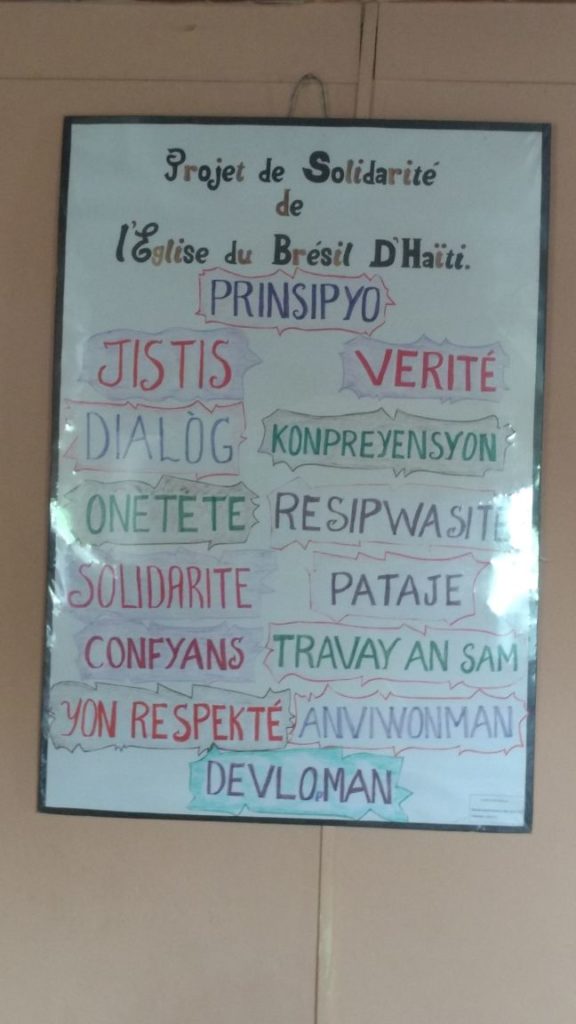 Projet de Solidarité
de
l'Eglise du Brésil D'Haïti.
PRINSIPYO
JISTIS VERITÉ
DIALÒG KONPREYENSYON
ONETETE RESIPWASITE
SOLIDARITE PATAJE
CONFYANS TRAVAY AN SAM
YON RESPEKTÉ ANVIWONMAN
DEVLOpMAN